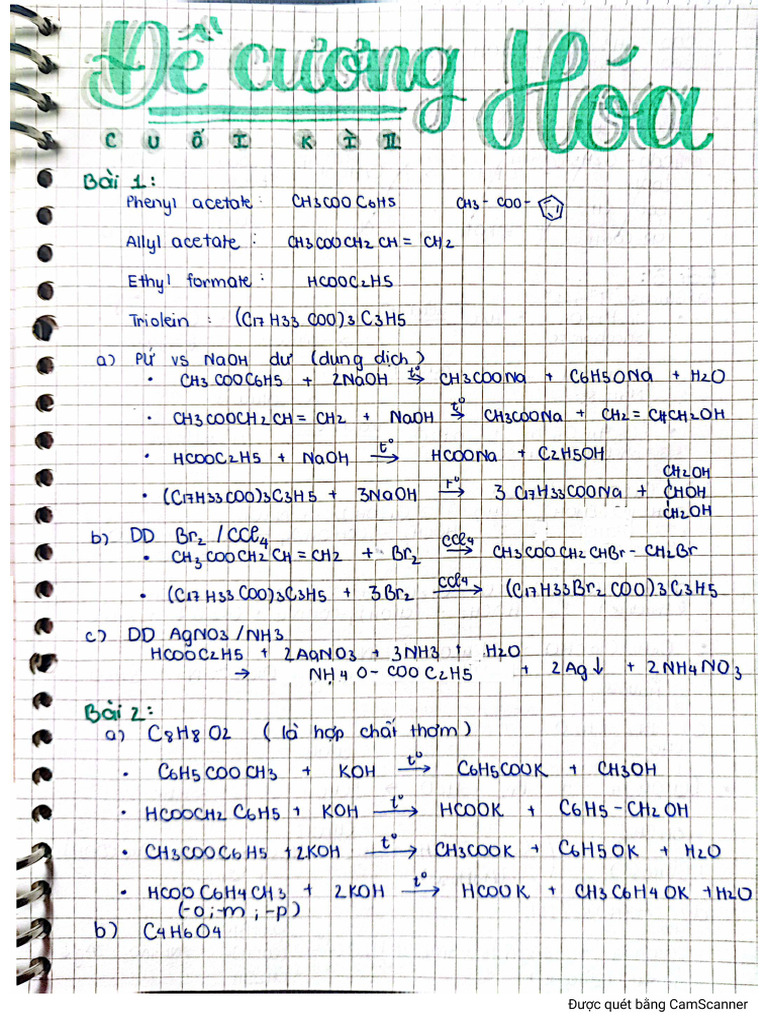 Đề cương Hóa
CUỐI KÌ II
Bài 1:
Phenyl acetate: CH3COOC6H5 CH3 - COO -
Allyl acetate: CH3COOCH2CH = CH2
Ethyl formate: HCOOC2H5
Triolein: (C17H33COO)3C3H5
a) PỨ vs NaOH dư (dung dịch)
• CH3COOC6H5 + 2NaOH t° ⇒ CH3COONa + C6H5ONa + H2O
• CH3COOCH2CH = CH2 + NaOH t° → CH3COONa + CH2 = CHCH2OH
• HCOOC2H5 + NaOH t° → HCOONa + C2H5OH
CH2OH
• (C17H33COO)3C3H5 + 3NaOH t° → 3 C17H33COONa + CHOH
CH2OH
b) DD Br2 / CCl4
• CH3COOCH2CH = CH2 + Br2 CCl4 → CH3COOCH2CHBr - CH2Br
• (C17H33COO)3C3H5 + 3Br2 CCl4 → (C17H33Br2COO)3C3H5
c) DD AgNO3 / NH3
HCOOC2H5 + 2AgNO3 + 3NH3 + H2O
→ NH4O - COOC2H5 + 2Ag↓ + 2NH4NO3
Bài 2:
a) C8H8O2 (là hợp chất thơm)
• C6H5COOCH3 + KOH t° → C6H5COOK + CH3OH
• HCOOCH2C6H5 + KOH t° → HCOOK + C6H5 - CH2OH
• CH3COOC6H5 + 2KOH t° → CH3COOK + C6H5OK + H2O
• HCOOC6H4CH3 + 2KOH t° → HCOOK + CH3C6H4OK + H2O
(-o ; -m ; -p)
b) C4H6O4
Được quét bằng CamScanner